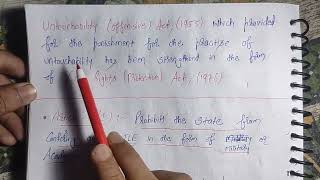 Untouchability (offensive) Act, (1955) which provided
for the punishment for the practise of
untouchability has been strengthend in the form
of Rights (Protection) Act, (1976)
Prohibit the state from
in the form of military or